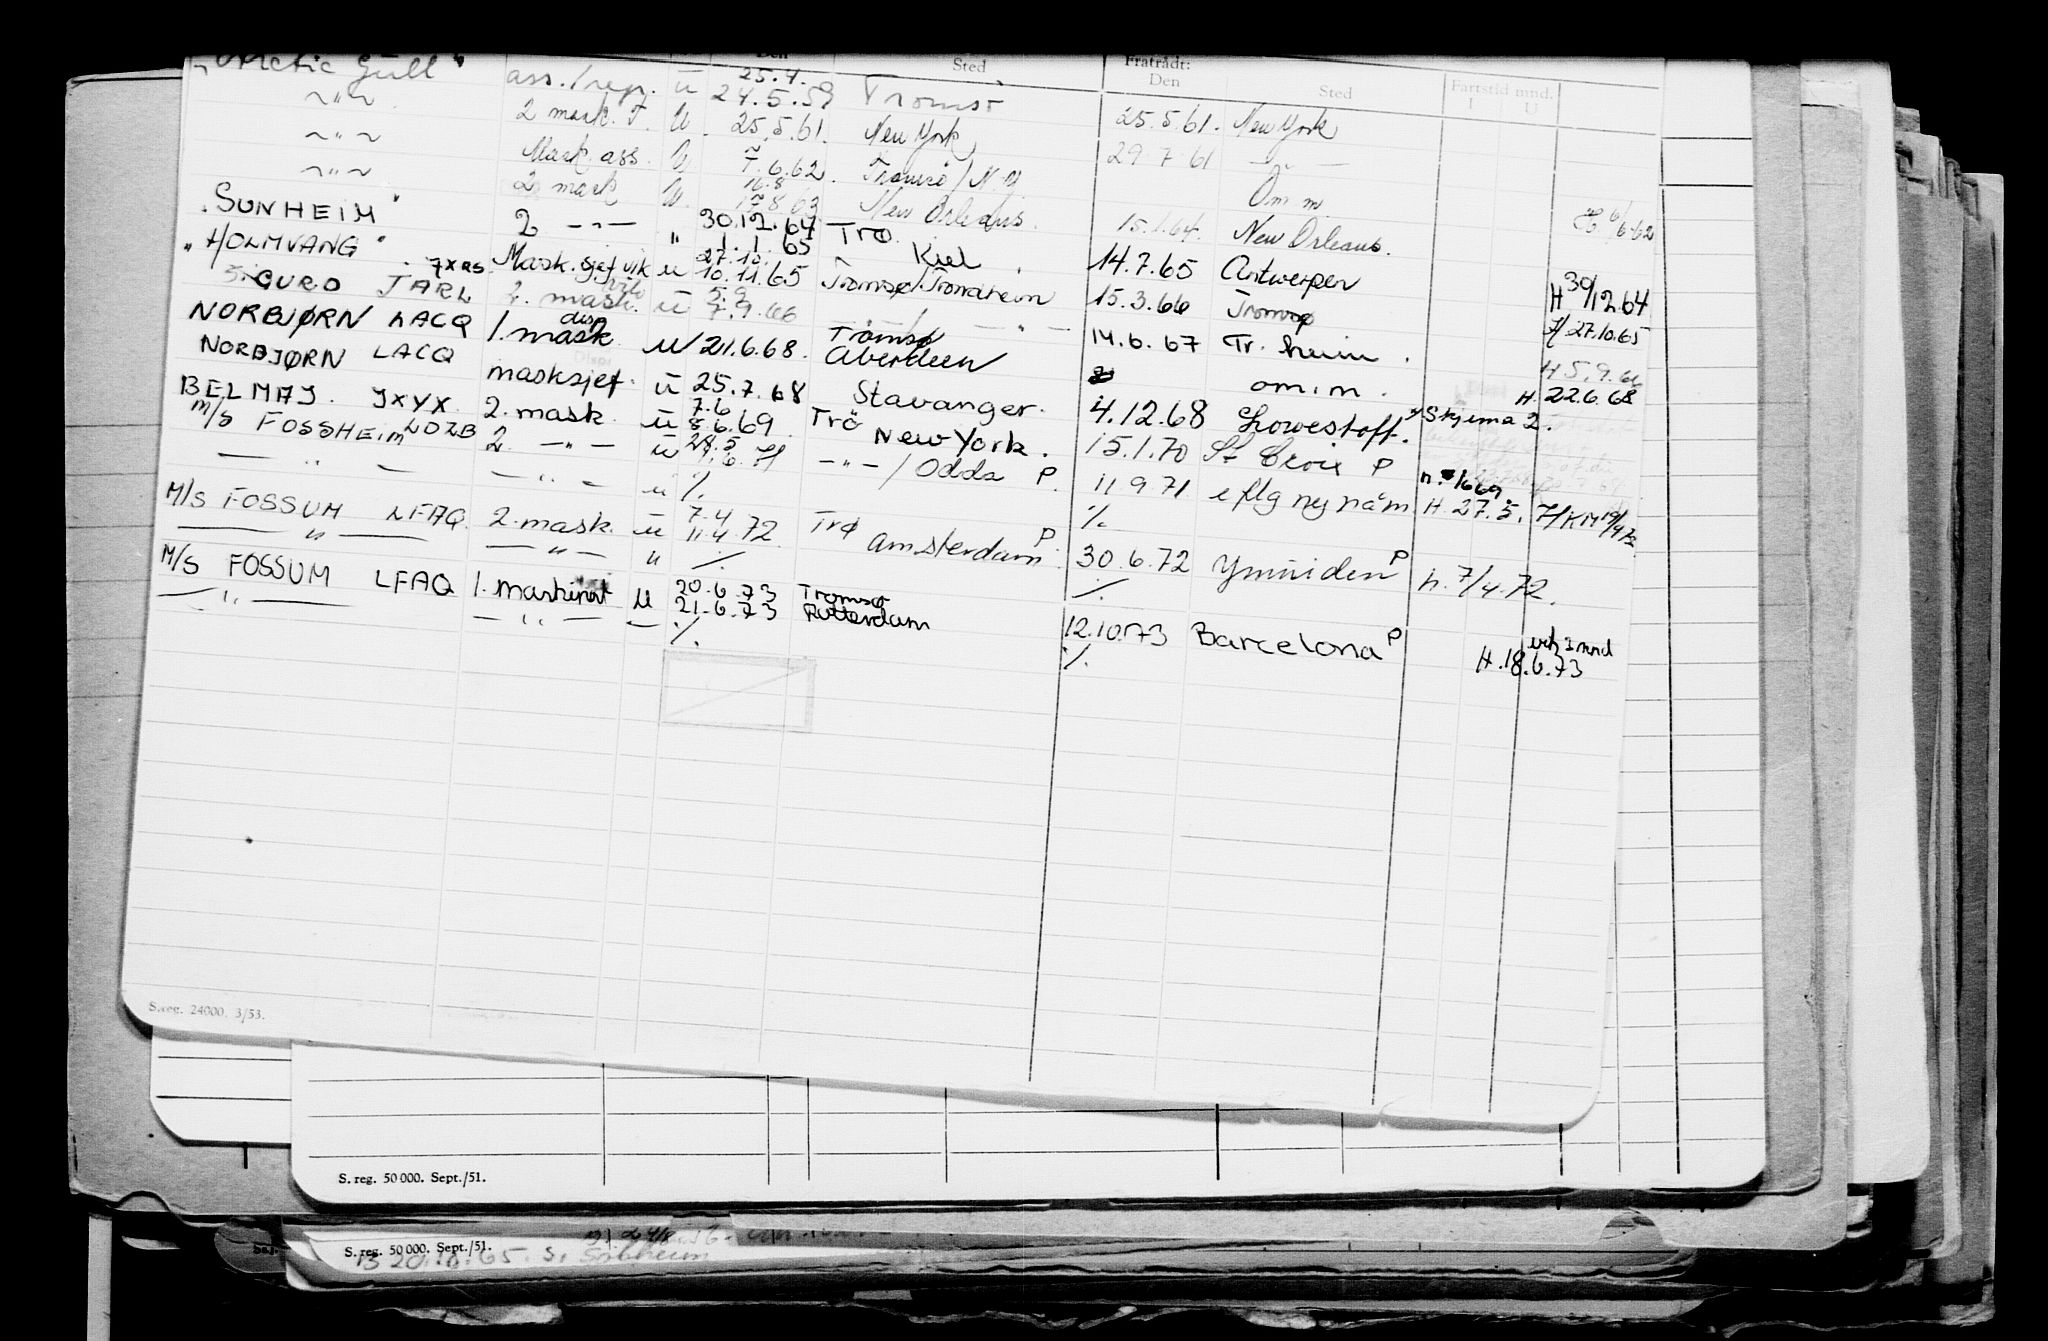 Sted Fratrådt: Den Sted Fartstid mnd. I U
"Arctic Gull" ass./rep. ü 25.4. 24.5.59 Tromsö 25.5.61. New York
~"~ 2 mask. U. 25.5.61. New York 29.7.61 — " —
~"~ Mask. ass. U 7.6.62. Tromsö/N.Y. Om. m. 6/6-62
~"~ 2 mask U. 16.8 17.8.63 New Orleans. 15.1.64. New Orleans.
"SUNHEIM" 2 -"- " 30.12.64 1.1.65 Trø. Kiel. 14.7.65 Antwerpen H 30/12.64
"HOLMVANG" JXRS Mask.sjef vik ü 27.10. 10.11.65 Tromsø/Trondheim 15.3.66 Tromsø H 27.10.65
SIGURD JARL 2. mask. ü 5.9 7.9.66 — " — 14.6.67 Tr. heim. H 5.9.66
NORBJØRN LACQ 1. mask disp. U 21.6.68. Tromsø Aberdeen om.m. H. 22.6.68
NORBJØRN LACQ masksjef. ü 25.7.68 Stavanger. 4.12.68 Lowestoft. Skjema 2.
BELMAJ. JXYX. 2. mask. ü 7.6 8.6.69. Trö New York. 15.1.70 St Croix P
M/S FOSSHEIM LDZB 2. -"- ü 28.5 Odda P. 11 9 71 e flg nej näm H. 27.5.
— " — — " — ü ./. ./.
M/S FOSSUM LFAQ. 2. mask. ü 7.4 11.4.72. Trø Amsterdam P. 30.6.72 Ymuiden P h. 7/4.72.
— " — — " — " ./. ./.
M/S FOSSUM LFAQ 1. maskinist U 20.6.73 21.6.73 Tromsø Rotterdam 12.10.73 Barcelona P H.18.6.73
— " — — " — — ./. ./.
S.reg. 24000. 3/53.
S. reg. 50 000. Sept./51.
S. reg. 50 000. Sept./51.